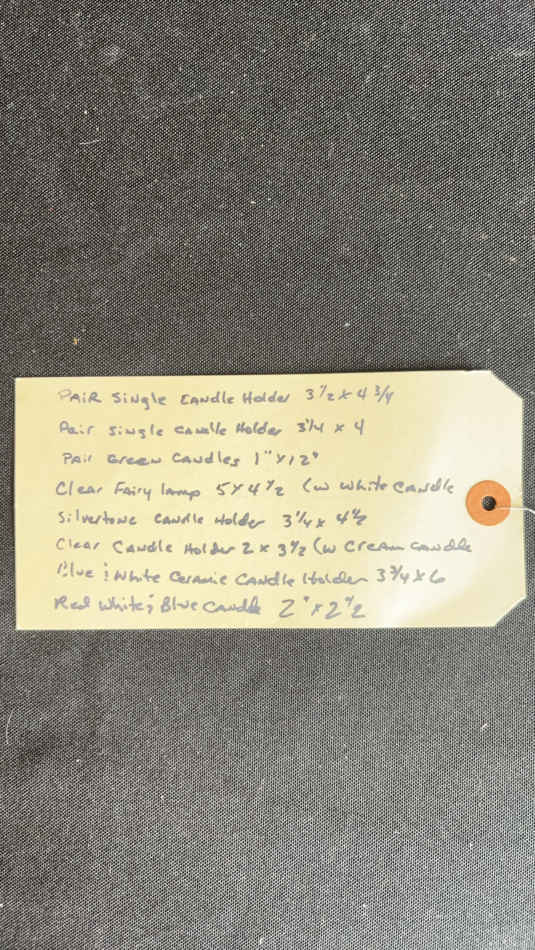 PAIR Single Candle Holder 3 1/2 x 4 3/4
Pair single candle Holder 3 1/4 x 4
PAIR Green Candles 1" x 12"
Clear Fairy lamp 5 x 4 1/2 (w white candle
Silvertone candle Holder 3 1/4 x 4 1/2
Clear Candle Holder 2 x 3 1/2 (w Cream candle
Blue & White Ceramic Candle Holder 3 3/4 x 6
Red White & Blue Candle 2" x 2 1/2